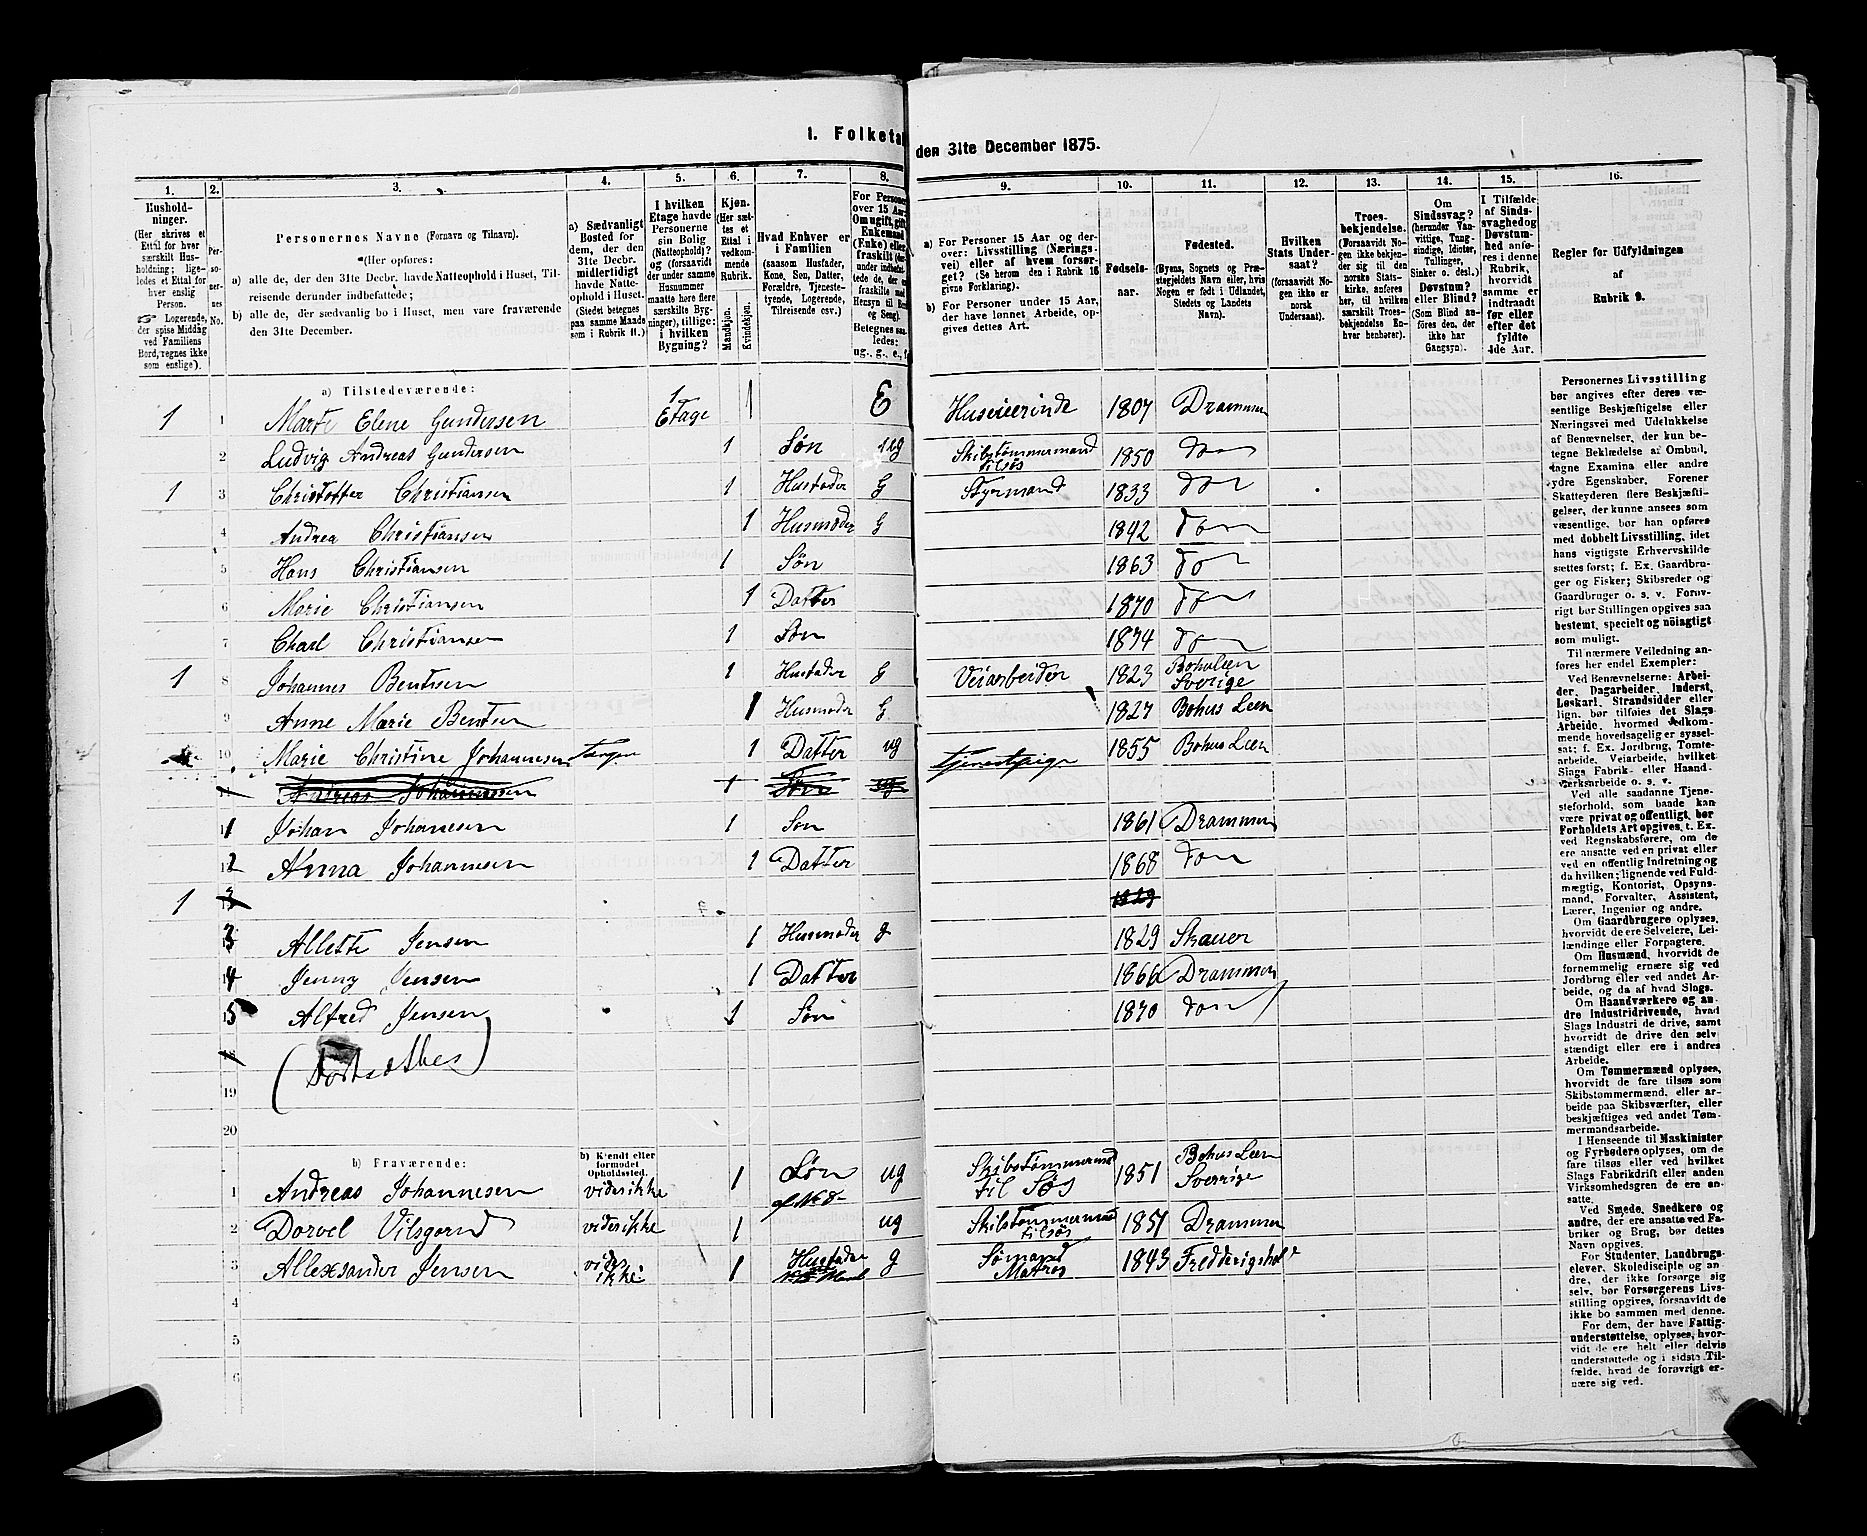 1. Folketal
den 31te December 1875.
1. 2. 3. 4. 5. 6. 7. 8. 9. 10. 11. 12. 13. 14. 15. 16.
Hushold-
ninger.
(Her skrives et
Ettal for hver
særskilt Hus-
holdning; lige-
ledes et Ettal for
hver enslig
Person.
☞ Logerende,
der spise Middag
ved Familiens
Bord, regnes ikke
som enslige).
Per-
so-
ner-
nes
No.
Personernes Navne (Fornavn og Tilnavn).
(Her opføres:
a) alle de, der den 31te Decbr. havde Natteophold i Huset, Til-
reisende derunder indbefattede;
b) alle de, der sædvanlig bo i Huset, men vare fraværende
den 31te December.
a) Sædvanligt
Bosted for
dem, der den
31te Decbr.
midlertidigt
havde Natte-
ophold i Huset.
(Stedet betegnes
paa samme Maade
som i Rubrik 11.)
I hvilken
Etage havde
Personerne
sin Bolig
(Natteophold)?
og (forsaavidt
der under samme
Husnummer
maatte høre flere
særskilte Byg-
ninger), tillige:
i hvilken
Bygning?
Kjøn.
(Her sæt-
tes et
Ettal i
vedkom-
mende
Rubrik.
Mandkjøn.
Kvindekjøn.
Hvad Enhver er
i Familien
(saasom Husfader,
Kone, Søn, Datter,
Forældre, Tjeneste-
tyende, Logerende,
Tilreisende osv.)
For Personer
over 15 Aar:
Om ugift, gift,
Enkemand
(Enke) eller
fraskilt
Betegnes saa-
ledes:
ug., g., e., f.
a) For Personer 15 Aar og der-
over: Livsstilling (Nærings-
vei) eller af hvem forsør-
get? (Se herom den i Rubrik 16
givne Forklaring).
b) For Personer under 15 Aar,
der have lønnet Arbeide, op-
gives dettes Art.
Fødsels-
aar.
Fødested.
(Byens, Sognets og Præ-
stegjeldets Navn eller, hvis
Nogen er født i Udlandet,
Stedets og Landets
Navn).
Hvilken
Stats Under-
saat?
(forsaavidt No-
gen ikke er
norsk
Undersaat).
Troes-
bekjendelse.
(Forsaavidt No-
gen ikke bekjen-
der sig til den
norske Stats-
kirke, anføres
her, til hvilken
særskilt Troes-
bekjendelse En-
hver henhører).
Om
Sindssvag?
(herunder Van-
vittige, Tung-
sindige, Idioter,
Tullinger,
Sinker o. desl.)
Døvstum?
eller Blind?
(Som Blind an-
føres den, der
ikke har
Gangsyn).
I Tilfælde
af Sinds-
svaghed og
Døvstum-
hed anfø-
res i denne
Rubrik,
hvorvidt
samme er
indtraadt
før eller
efter det
fyldte
4de Aar.
Regler for Udfyldningen
af
Rubrik 9.
a) Tilstedeværende:
1 1 Marte Elene Gundersen 1 Etage 1 E Huseierinde 1807 Drammen
2 Ludvig Andreas Gundersen 1 Søn ug Skibstømmermand tilsøs 1850 do
1 3 Christoffer Christiansen 1 Husfader G Styrmand 1833 do
4 Andrea Christiansen 1 Husmoder G 1842 do
5 Hans Christiansen 1 Søn 1863 do
6 Marie Christiansen 1 Datter 1870 do
7 Charl Christiansen 1 Søn 1874 do
1 8 Johannes Bentsen 1 Husfader g Veiarbeider 1823 Bohuleen Sverige
9 Anne Marie Bentsen 1 Husmoder G 1827 Bohus Leen
10 Marie Christine Johannesen Tangen 1 Datter ug Tjenestpige 1855 Bohus Leen
Andreas Johannessen 1 Søn ug
11 Johan Johanesen 1 Søn 1861 Drammen
12 Anna Johannesen 1 Datter 1868 do
1 1829
13 Allette Jensen 1 Husmoder g 1829 Skauer
14 Jenny Jensen 1 Datter 1866 Drammen
15 Alfred Jensen 1 Søn 1870 do
19
20
b) Fraværende:
b) Kjendt eller
formodet
Opholdssted.
1 Andreas Johannesen vides ikke 1 Søn ug Skibstømmermand til Søs 1851 Bohus Leen Sverrige
2 Dorvel Vilsgord vides ikke 1 ug Skibstømmermand tilsøs 1851 Drammen
3 Allexsander Jensen vides ikke 1 Husfader g Sømand Matros 1843 Fredderigshal
4
5
6
Personernes Livsstilling
bør angives efter deres væ-
sentlige Beskjæftigelse eller
Næringsvei med Udelukkelse
af Benævnelser, der kun be-
tegne Beklædelse af Ombud,
tagne Examina eller andre
ydre Egenskaber. Forener
Skatteyderen flere Beskjæfti-
gelser, der kunne ansees som
væsentlige, bør han opføres
med dobbelt Livsstilling, idet
hans vigtigste Erhvervskilde
sættes først; f. Ex. Gaardbru-
ger og Fisker; Skibsreder og
Gaardbruger o. s. v. Forøv-
rigt bør Stillingen opgives saa
bestemt, specielt og nöiagtigt
som muligt.
Til nærmere Veiledning an-
føres her endel Exempler:
Ved Benævnelserne: Arbei-
der, Dagarbeider, Inderst,
Løskarl, Strandsidder eller
lign. bør tilføies det Slags
Arbeide, hvormed Vedkom-
mende hovedsagelig er syssel-
sat; f. Ex. Jordbrug, Tomte-
arbeide, Veiarbeide, hvilket
Slags Fabrik- eller Haand-
værksarbeide o. s. v.
Ved alle saadanne Tjene-
steforhold, som baade kan
være privat og offentligt, bør
Forholdets Art opgives, t. Ex.
ved Regnskabsførere, om de
ere ansatte ved en privat eller
ved en offentlig Indretning og
da hvilken; lignende ved Fuld-
mægtig, Kontorist, Opsyns-
mand, Forvalter, Assistent,
Lærer, Ingeniør og andre.
Om Gaardbrugere oplyses,
hvorvidt de ere Selveiere, Lei-
lændinge eller Forpagtere.
Om Husmænd, hvorvidt de
fornemmelig ernære sig ved
Jordbrug eller ved andet Ar-
beide, og da af hvad Slags.
Om Haandværkere og an-
dre Industridrivende, hvad
Slags Industri de drive, samt
hvorvidt de drive den selv-
stændigt eller ere i andres
Arbeide.
Om Tømmermænd oplyses,
hvorvidt de fare tilsøs som
Skibstømmermænd, eller ar-
beide paa Skibsværfter, eller
beskjæftiges ved andet Tøm-
mermandsarbeide.
I Henseende til Maskinister
og Fyrbødere oplyses, om de
fare tilsøs eller ved hvilket
Slags Fabrikdrift eller anden
Virksomhedsgren de ere an-
satte.
Ved Smede, Snedkere og
andre, der ere ansatte ved Fa-
briker og Brug, bør dettes
Navn opgives.
For Studenter, Landbrugs-
elever, Skoledisciple og an-
dre, der ikke forsørge sig
selv, bør Forsørgerens Livs-
stilling opgives, forsaavidt de
ikke bo sammen med denne.
For dem, der have Fattig-
understøttelse, oplyses, hvor-
vidt de ere helt eller delvis
understøttede og i sidste Til-
fælde, hvad de forøvrigt er-
nære sig ved.